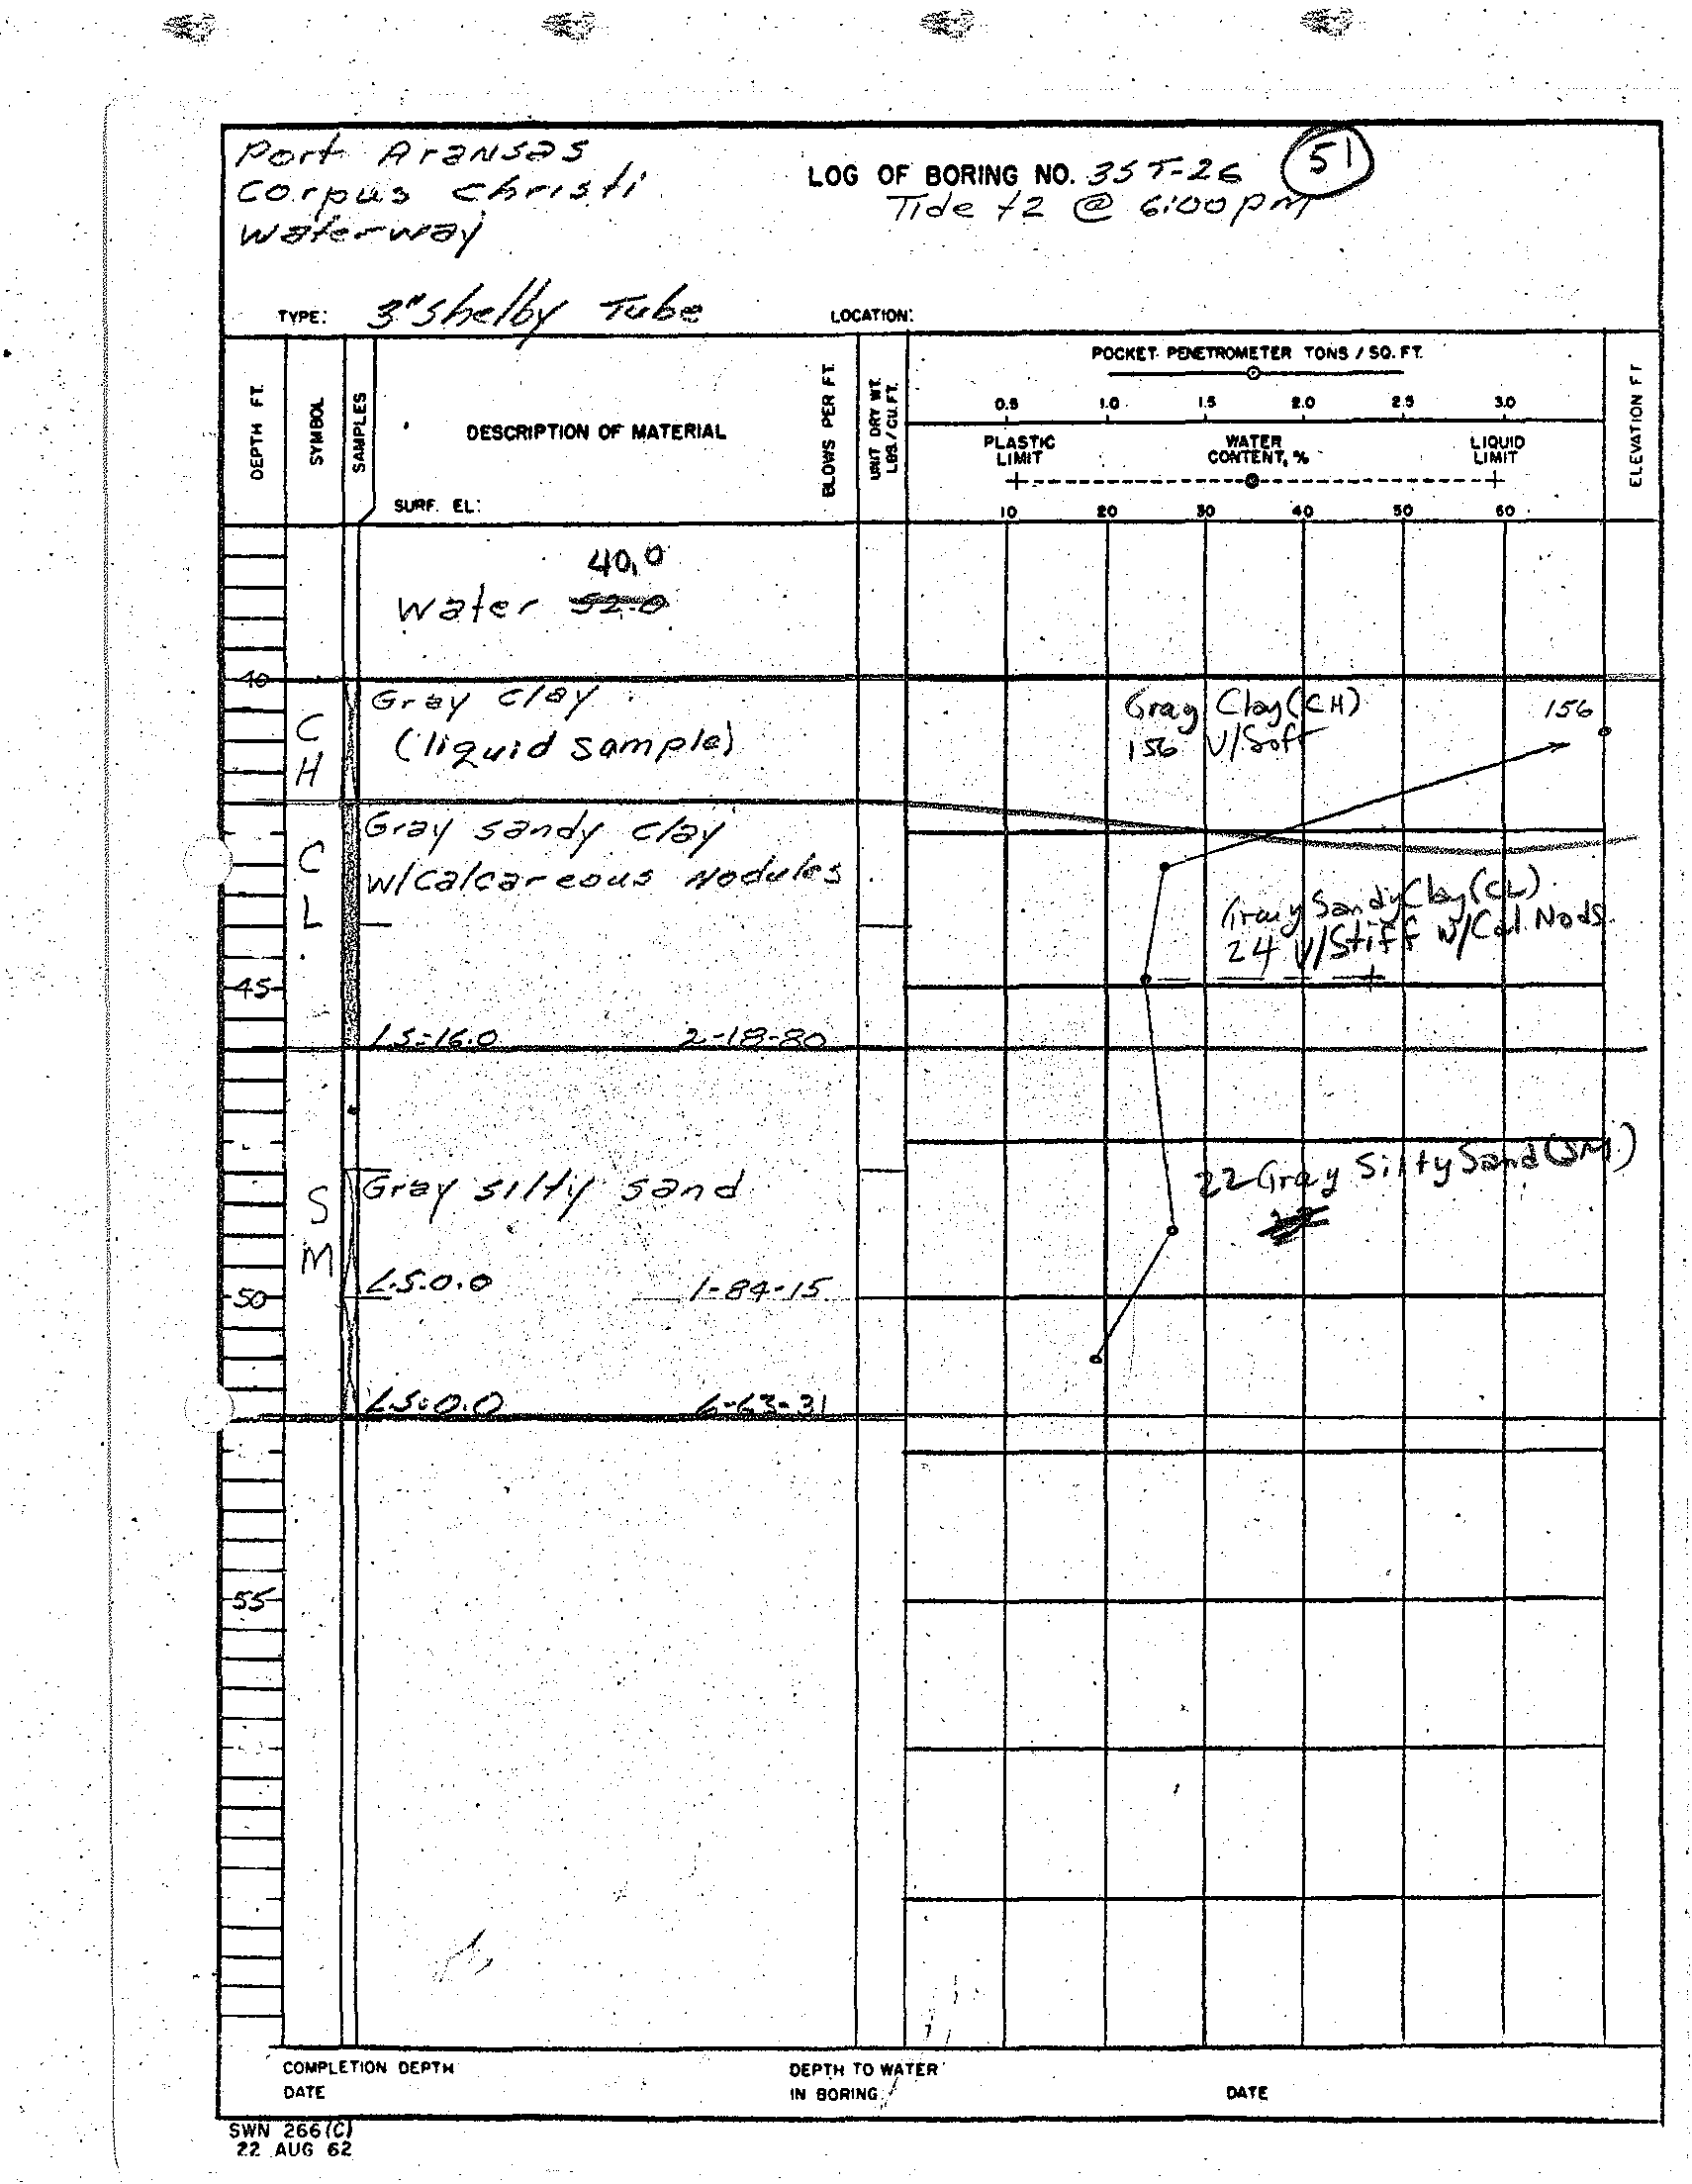 Port Aransas
Corpus Christi
Waterway
LOG OF BORING NO. 3ST-26
51
Tide +2 @ 6:00 PM
TYPE: 3" Shelby Tube
LOCATION:
DEPTH FT.
SYMBOL
SAMPLES
DESCRIPTION OF MATERIAL
SURF. EL:
BLOWS PER FT.
UNIT DRY WT. LBS./CU.FT.
POCKET PENETROMETER TONS / SQ. FT.
0.5 1.0 1.5 2.0 2.5 3.0
PLASTIC LIMIT
WATER CONTENT, %
LIQUID LIMIT
10 20 30 40 50 60
ELEVATION FT
40.0
Water 52.0
40
CH
Gray clay
(liquid sample)
Gray Clay (CH)
156 V/Soft
156
CL
Gray sandy clay
w/Calcareous Nodules
Gray Sandy Clay (CL)
24 V/Stiff w/Cal. Nods.
45
LS=16.0 2-18-80
SM
Gray silty sand
22 Gray Silty Sand (SM)
L.S.0.0 1-84-15
50
L.S.0.0 6-63-31
55
COMPLETION DEPTH
DATE
DEPTH TO WATER
IN BORING
DATE
SWN 266(C)
22 AUG 62